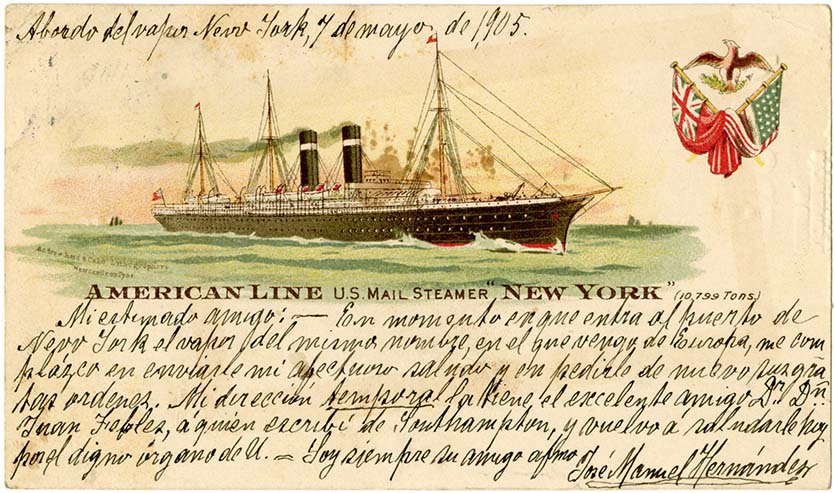 Abordo del vapor New York, 7 de mayo de 1905.
Andrew Reid & Coy Ld Lithographers
Newcastle on Tyne
AMERICAN LINE U.S. MAIL STEAMER "NEW YORK" (10,799 Tons.)
Mi estimado amigo: — En momento en que entra al puerto de
New York el vapor del mismo nombre, en el que vengo de Europa, me com
plázco en enviarle mi afectuoso saludo y en pedirle de nuevo sus gra
tas ordenes. Mi dirección tempora la tiene el excelente amigo Dr. Dn.
Juan á quien escribí de Southampton, y vuelvo a saludarle hoy
por el digno órgano de U. — Soy siempre su amigo afmo
José Manuel Hernández